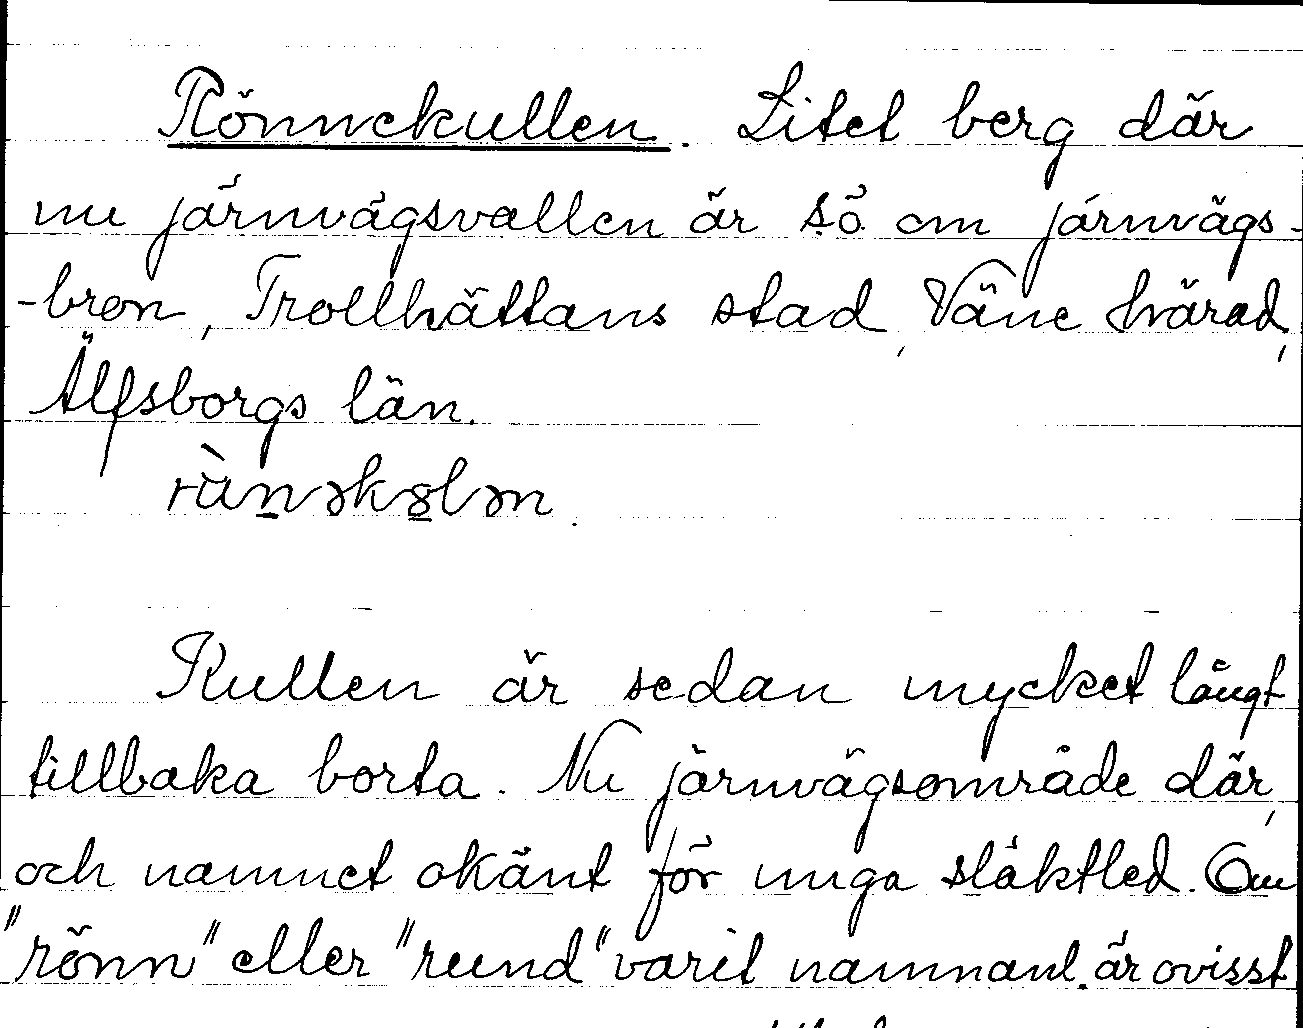 Rönnekullen. Litet berg där
nu järnvägsvallen är s.ö. om järnvägs-
-bron, Trollhättans stad, Väne härad,
Älfsborgs län.
Kullen är sedan mycket långt
tillbaka borta. Nu järnvägsområde där,
och namnet okänt för unga släktled. Om
"rönn" eller "rund" varit namnand. är ovisst